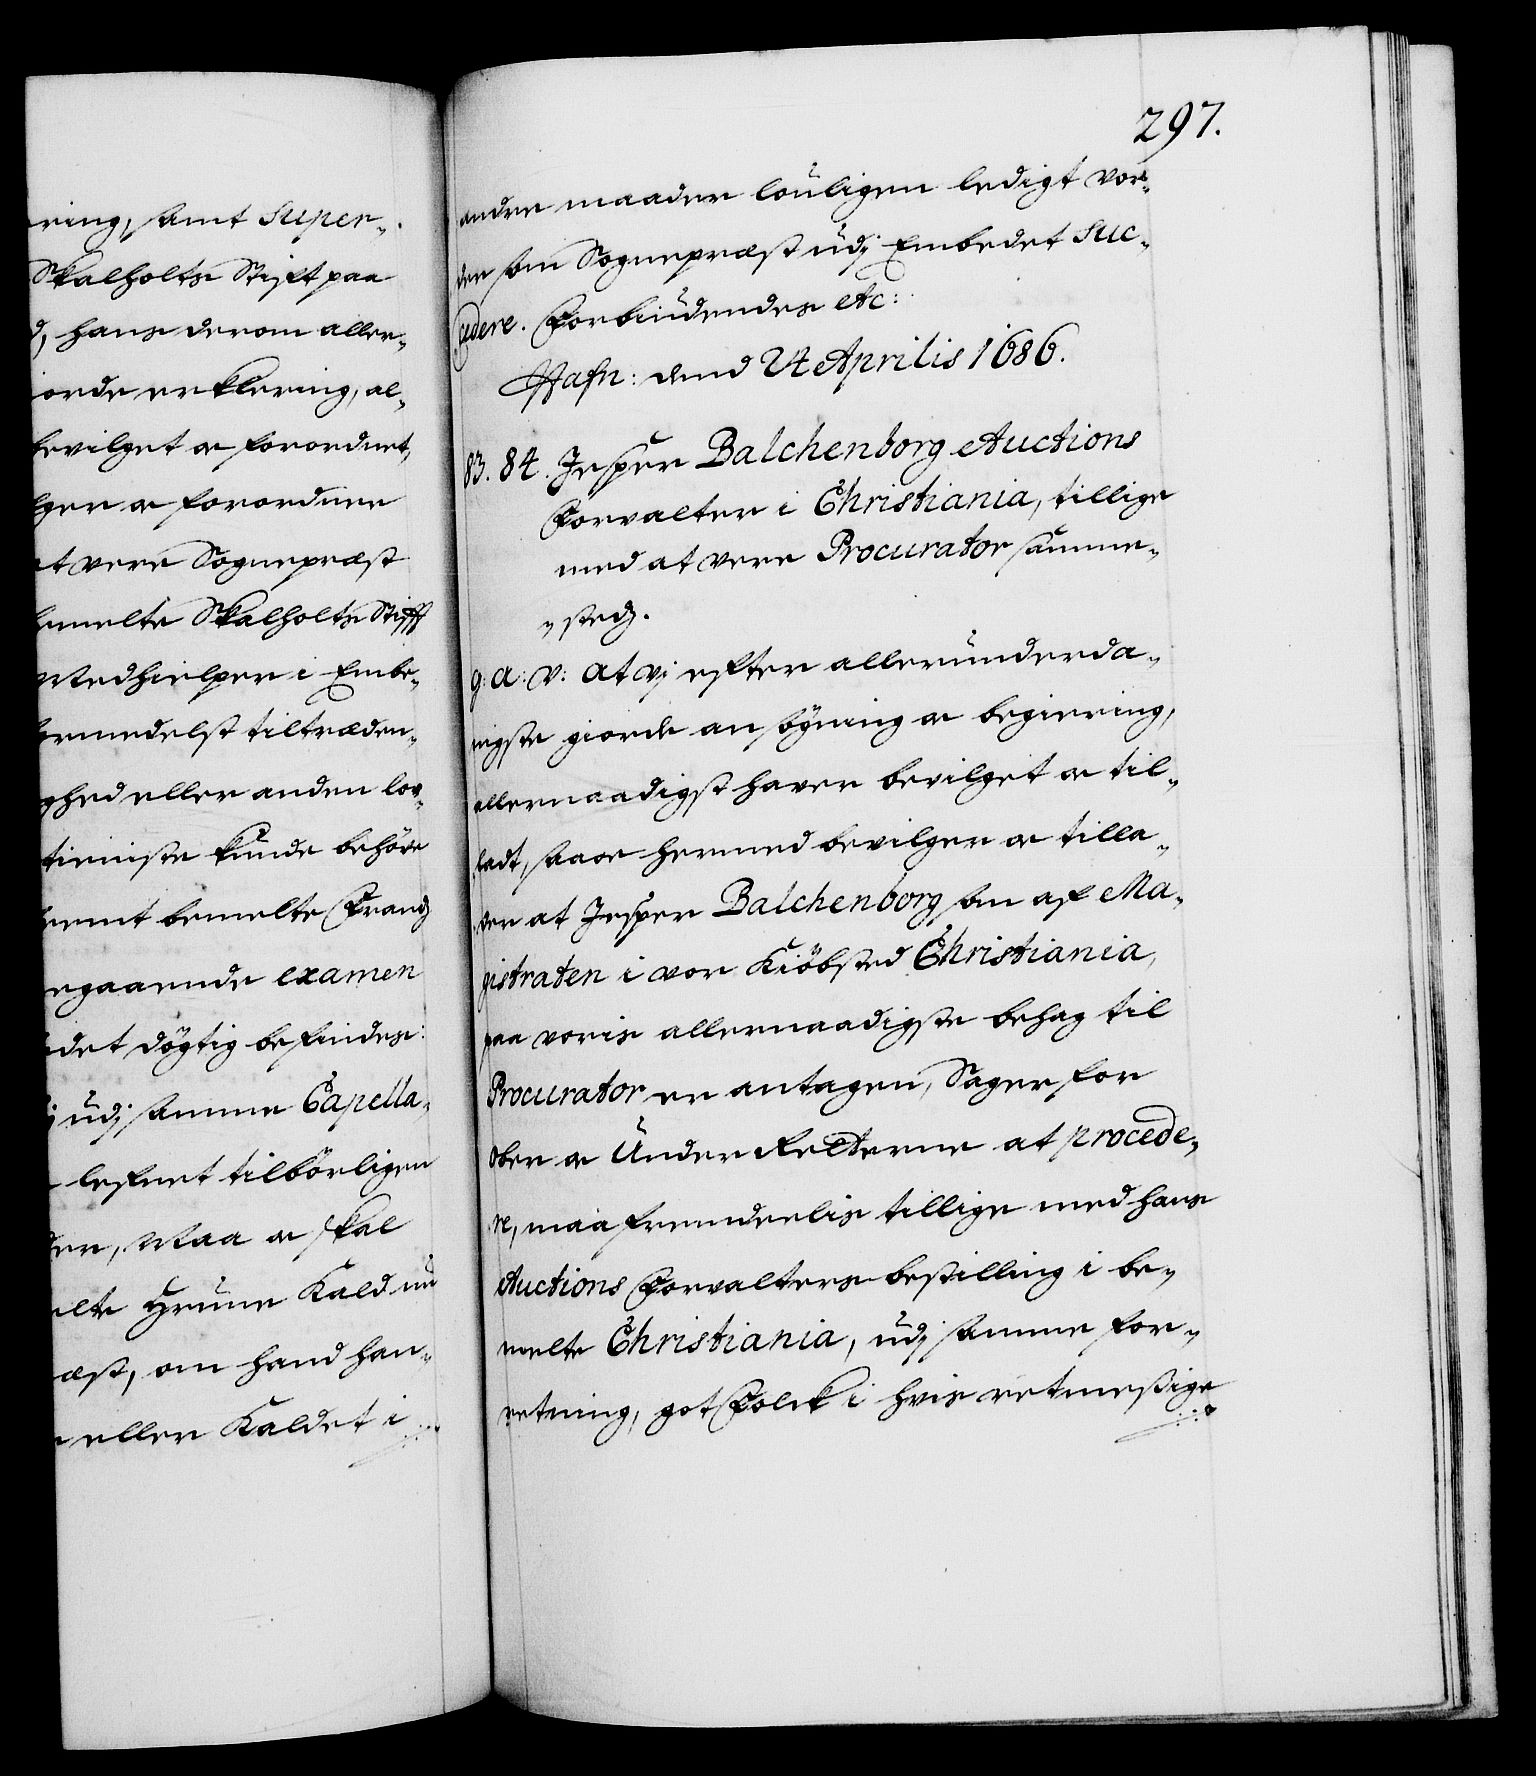 ring, samt Super-
Skalholts Stift paa
d, hans derom aller-
iorde erklering, al-
bevilget og forordnet,
lger og forordner
at vere Sognepræst
bemelte Skalholts Stifft
Medhielper i Embe-
formedelst tiltræden-
ghed eller anden lov-
tieniste kunde behöve
nemt bemelte Frandz
regaaende examen
det dögtig befindes:
udj samme Capella-
lefnet tilbörligen
der, Maa og skal
elte Grune Kald nu
æst, om hand han-
eller Kaldet i
297.
andre maader louligen ledigt vor-
der som Sognepræst udj Embedet suc-
cedere. Forbiudendes etc:
Hafn: dend 24 Aprilis 1686.
83. 84. Jesper Balchenborg Auctions
Forvalter i Christiania, tillige
med at vere Procurator samme-
steds.
g: a: v: at vj efter allerunderda-
nigste giorde ansögning og begiering,
allernaadigst haver bevilget og til-
ladt, saa og hermed bevilger og tilla-
der at Jesper Balchenborg som af Ma-
gistraten i vor Kiöbsted Christiania,
paa voris allernaadigste behag til
Procurator er antagen, Sager for
Ober og Under Retterne at procede-
re, maa fremdeelis tillige med hans
Auctions Forvalters bestilling i be-
melte Christiania, udj samme for-
retning, got Folck i hvis retmeßige